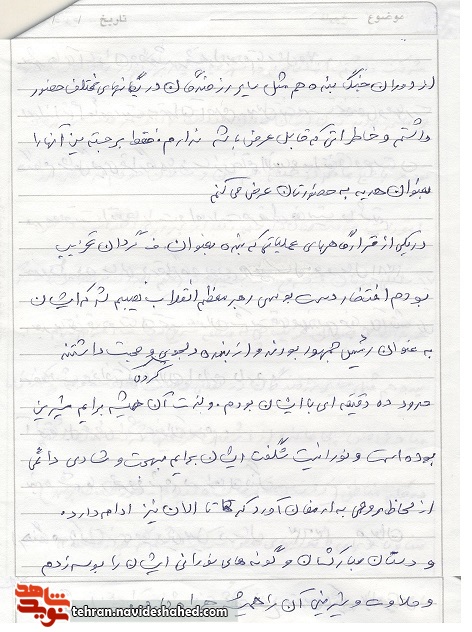 موضوع
تاریخ / /
از دوران جنگ بنده هم مثل سایر رزمندگان در یگانهای مختلف حضور
داشتم و خاطراتی که قابل عرض باشد ندارم، فقط برجسته‌ترین آنها را
بعنوان هدیه به حضورتان عرض می‌کنم
در یکی از قرارگاههای عملیاتی که بنده بعنوان ف گردان تخریب
بودم افتخار دست بوسی رهبر معظم انقلاب نصیبم شد که ایشان
به عنوان رئیس جمهور بودند و از بنده دلجویی و محبت داشتند
کرده
حدود ده دقیقه ای با ایشان بودم. ولذت آن همیشه برایم شیرین
بوده است و نورانیت شگفت ایشان برایم بهجت و شادی دائمی
از لحاظ روحی به ارمغان آورد که تا الان نیز ادامه دارد.
و دستان مبارکشان و گونه های نورانی ایشان را بوسه زدم
و حلاوت و شیرینی آن را همیشه
نوید شاهد
tehran.navideshahed.com